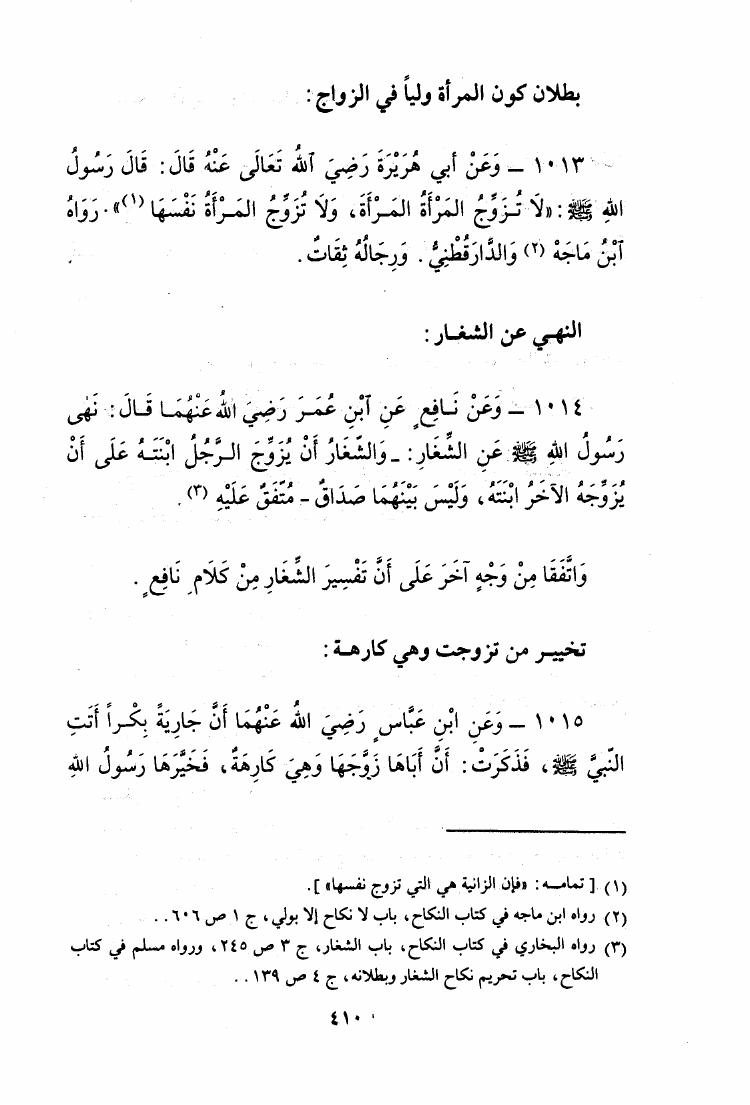 بطلان كون المرأة ولياً في الزواج :
١٠١٣ ــ وَعَنْ أبي هُرَيْرَةَ رَضِيَ ٱللهُ تَعَالَى عَنْهُ قَالَ: قَالَ رَسُولُ
اللهِ ﷺ: «لَا تُـزَوِّجُ المَرْأَةُ المَـرْأَةَ، وَلَا تُزَوِّجُ المَـرْأَةُ نَفْسَهَا (١)». رَوَاهُ
ٱبْنُ مَاجَهْ (٢) وَالدَّارَقُطْنِيُّ. وَرِجَالُهُ ثِقَاتٌ.
النهـي عن الشغـار :
١٠١٤ ــ وَعَنْ نَـافِعٍ عَنِ ٱبْنِ عُمَـرَ رَضِيَ اللهُ عَنْهُمَـا قَـالَ: نَهٰى
رَسُولُ اللهِ ﷺ عَنِ الشِّغَارِ: ـ وَالشِّغَارُ أَنْ يُزَوِّجَ الـرَّجُلُ ابْنَتَـهُ عَلَى أَنْ
يُزَوِّجَهُ الآخَرُ ابْنَتَهُ، وَلَيْسَ بَيْنَهُمَا صَدَاقٌ ـ مُتَّفَقٌ عَلَيْهِ (٣).
وَاتَّفَقَا مِنْ وَجْهٍ آخَرَ عَلَى أَنَّ تَفْسِيرَ الشِّغَارِ مِنْ كَلَامِ نَافِعٍ.
تخييـر من تزوجت وهي كارهـة :
١٠١٥ ــ وَعَنِ ابْنِ عَبَّاسٍ رَضِيَ اللهُ عَنْهُمَا أَنَّ جَارِيَةً بِكْـراً أَتَتِ
النَّبِيَّ ﷺ، فَذَكَرَتْ: أَنَّ أَبَاهَا زَوَّجَهَا وَهِيَ كَارِهَةٌ، فَخَيَّرَهَا رَسُولُ اللهِ
(١) [ تمامـه: «فإن الزانية هي التي تزوج نفسها» ].
(٢) رواه ابن ماجه في كتاب النكاح، باب لا نكاح إلا بولي، ج ١ ص ٦٠٦ . .
(٣) رواه البخاري في كتاب النكاح، باب الشغار، ج ٣ ص ٢٤٥، ورواه مسلم في كتاب
النكاح، باب تحريم نكاح الشغار وبطلانه، ج ٤ ص ١٣٩ . .
٤١٠